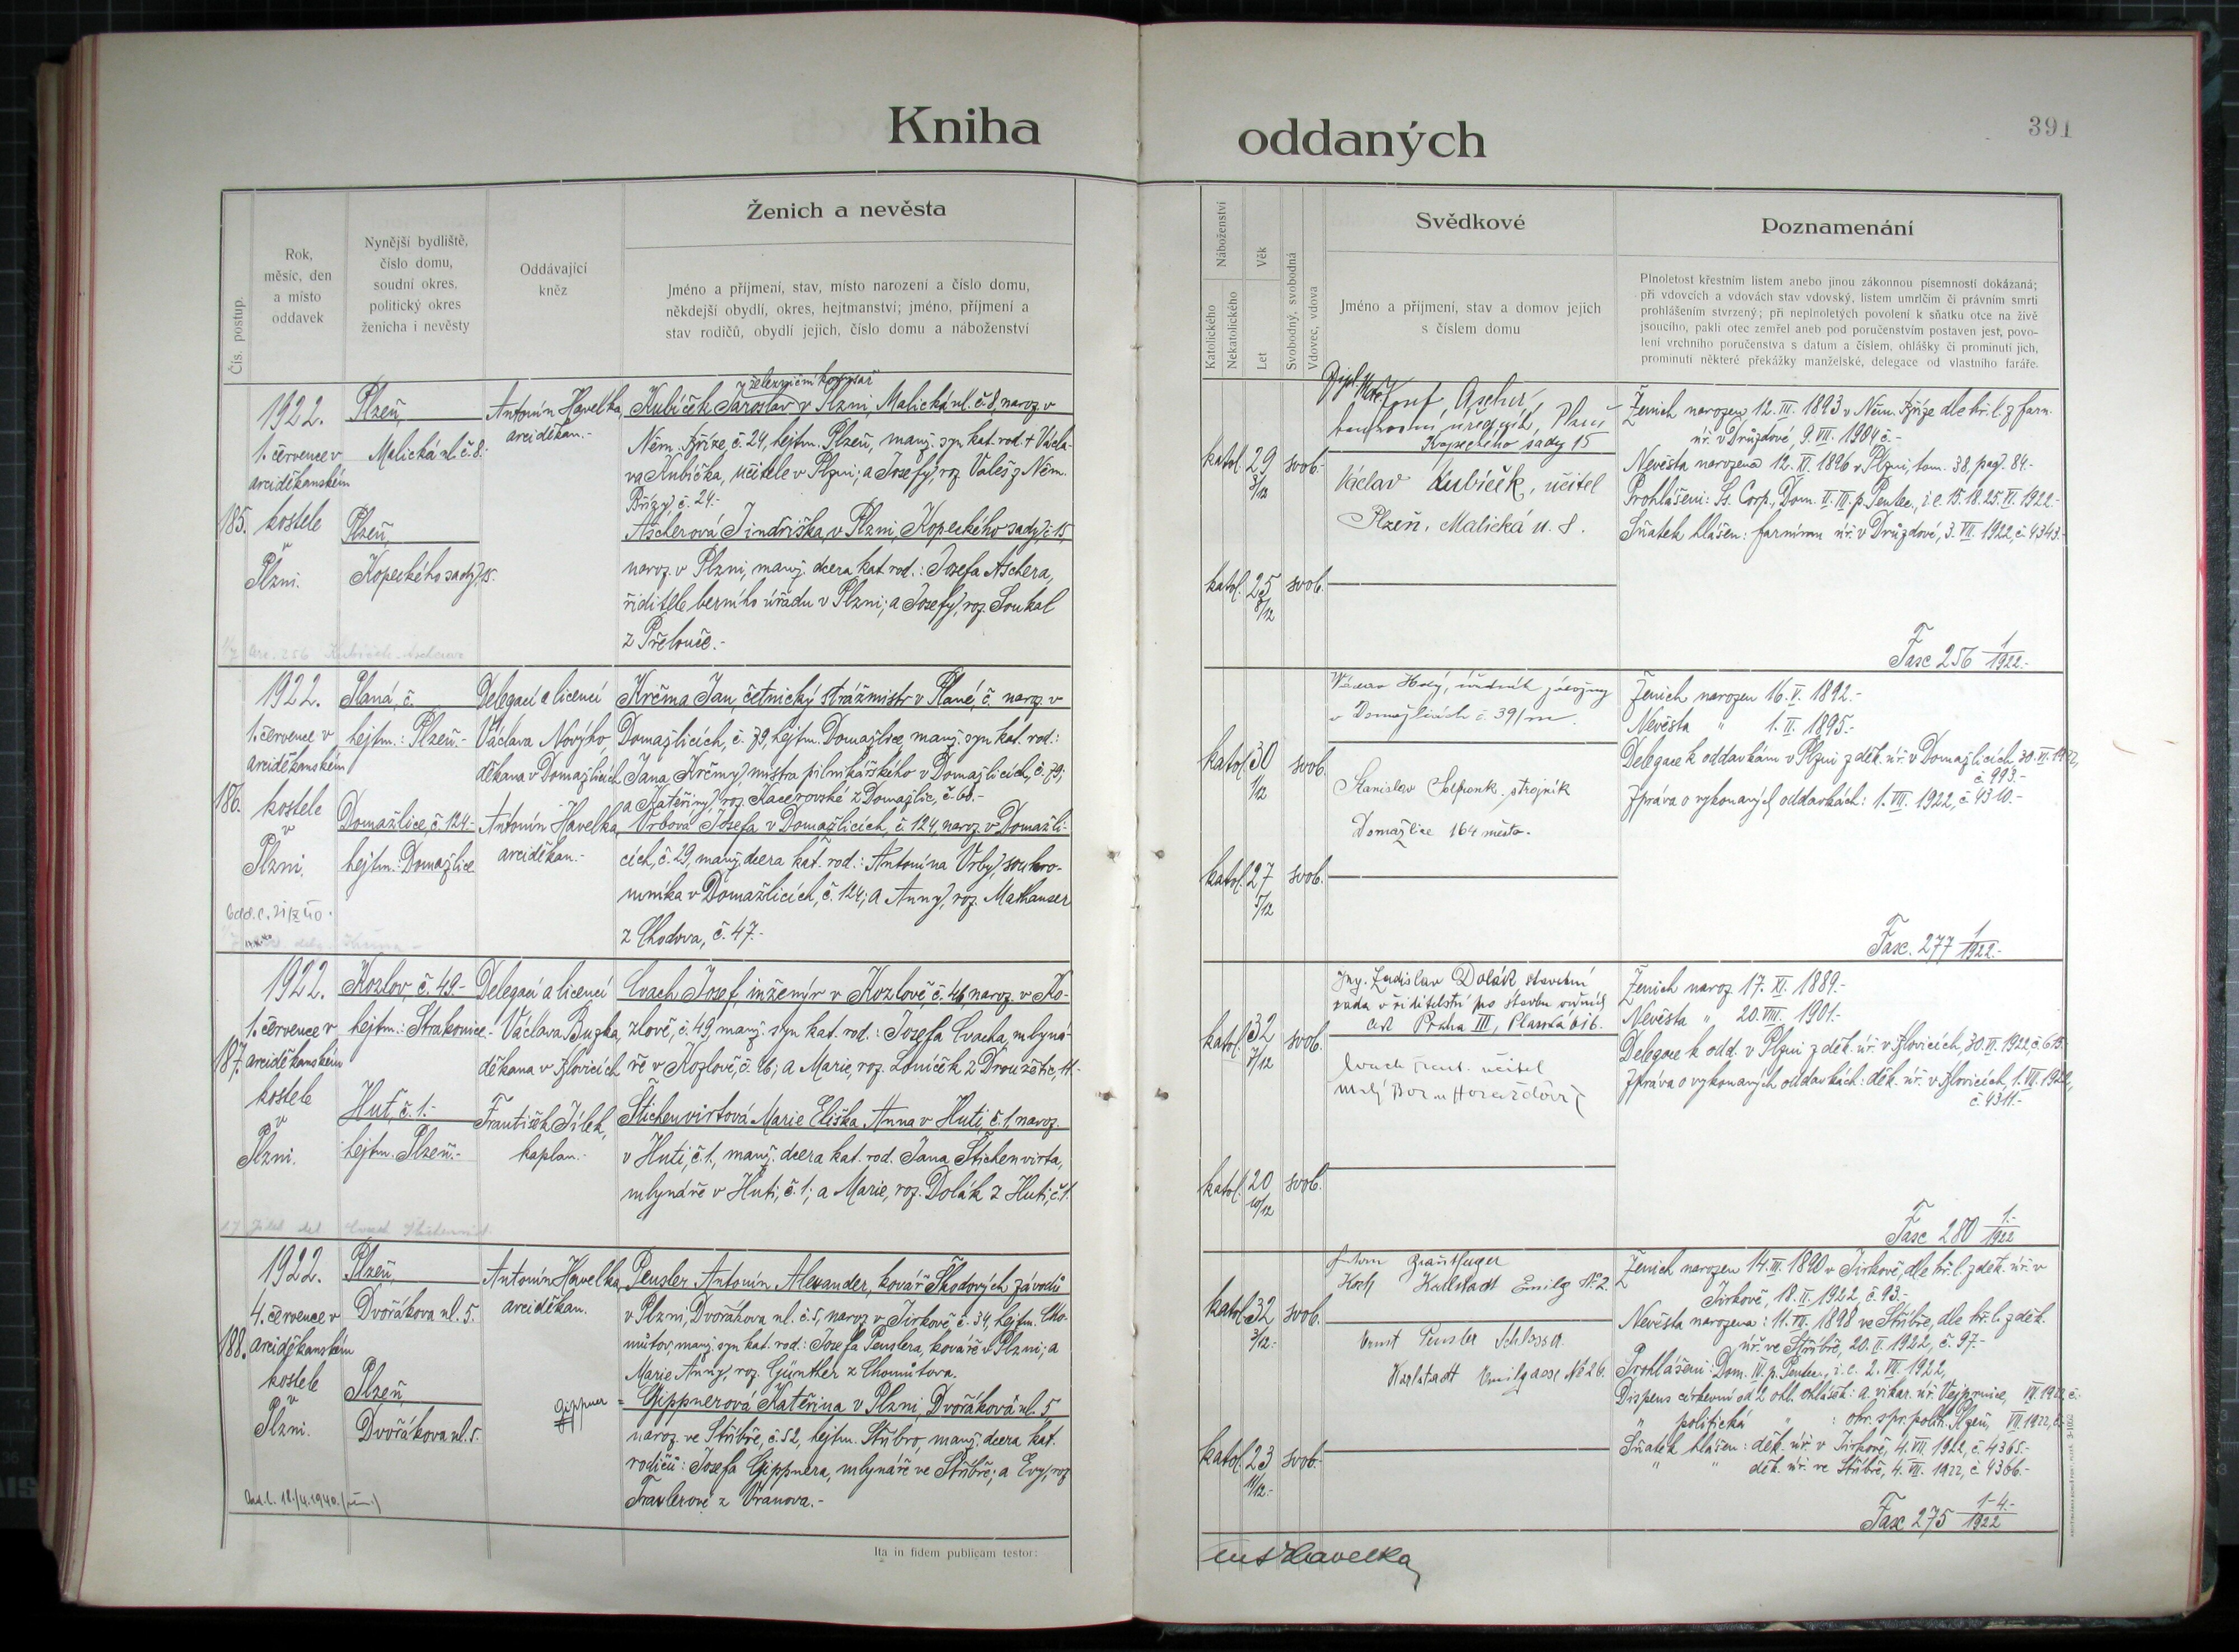 Kniha
oddaných
391
Čís. postup.
Rok,
měsíc, den
a místo
oddavek
Nynější bydliště,
číslo domu,
soudní okres,
politický okres
ženicha i nevěsty
Oddávající
kněz
Ženich a nevěsta
Jméno a příjmení, stav, místo narození a číslo domu,
někdejší obydlí, okres, hejtmanství; jméno, příjmení a
stav rodičů, obydlí jejich, číslo domu a náboženství
Náboženství
Katolického
Nekatolického
Věk
Let
Svobodný, svobodná
Vdovec, vdova
Svědkové
Jméno a příjmení, stav a domov jejich
s číslem domu
Poznamenání
Plnoletost křestním listem anebo jinou zákonnou písemností dokázaná;
při vdovcích a vdovách stav vdovský, listem umrlčím či právním smrti
prohlášením stvrzený; při neplnoletých povolení k sňatku otce na živě
jsoucího, pakli otec zemřel aneb pod poručenstvím postaven jest, povo-
lení vrchního poručenstva s datum a číslem, ohlášky či prominutí jich,
prominutí některé překážky manželské, delegace od vlastního faráře.
185.
1922.
1. července v
arciděkanském
kostele
v
Plzni.
Plzeň,
Malická ul. č. 8.
Plzeň,
Kopeckého sady, 15.
Antonín Havelka,
arciděkan.-
železniční komisař
Kubíček Jaroslav v Plzni, Malická ul. č. 8, naroz. v
Něm. Bříze, č. 24, hejtm. Plzeň, manž. syn kat. rod. + Václa-
va Kubíčka, učitele v Plzni; a Josefy, roz. Valeš z Něm.
Břízy, č. 24.-
Ascherová Jindřiška, v Plzni, Kopeckého sady, č. 15,
naroz. v Plzni, manž. dcera kat. rod.: Josefa Aschera,
řiditele berního úřadu v Plzni; a Josefy, roz. Soukal
z Přelouče.-
katol. 29 3/12 svob.
katol. 25 8/12 svob.
Ascher,
Plzeň
Kopeckého sady 15
Václav Kubíček, učitel
Plzeň, Malická u. 8.
Ženich narozen 12. III. 1893 v Něm. Bříze dle kř. l. z farn.
úř. v Druzdové, 9. VII. 1904 č.-
Nevěsta narozena 12. XI. 1896 v Plzni, tom. 38, pag. 84.-
Prohlášení: Ss. Corp., Dom. II. III. p. Pentec., i. e. 15. 18. 25. VI. 1922.-
Sňatek hlášen: farnímu úř. v Druzdové, 3. VII. 1922, č. 4343.-
Fasc 256 1/1922.-
186.
1922.
1. července v
arciděkanském
kostele
v
Plzni.
Planá, č.
hejtm.: Plzeň.-
Domažlice, č. 124.-
hejtm.: Domažlice
Delegací a licencí
Václava Nového,
děkana v Domažlicích
Antonín Havelka,
arciděkan.-
Krčma Jan, četnický strážmistr v Plané, č. naroz. v
Domažlicích, č. 79, hejtm. Domažlice, manž. syn kat. rod.:
Jana Krčmy, mistra pilnikářského v Domažlicích, č. 79;
a Kateřiny, roz. Kacerovské z Domažlic, č. 60.-
Vrbová Josefa, v Domažlicích, č. 124, naroz. v Domažli-
cích, č. 29, manž. dcera kat. rod.: Antonína Vrby, soukro-
mníka v Domažlicích, č. 124; a Anny, roz. Mathauser
z Chodova, č. 47.-
katol. 30 1/12 svob.
katol. 27 5/12 svob.
v Domažlicích č. 39/m.
Stanislav strojník
Domažlice 164 město.
Ženich narozen 16. V. 1892.-
Nevěsta " 1. II. 1895.-
Delegace k oddavkám v Plzni z děk. úř. v Domažlicích, 30. VI. 1922,
č. 993.-
Zpráva o vykonaných oddavkách: 1. VII. 1922, č. 4310.-
Fasc. 277 1/1922.-
187.
1922.
1. července v
arciděkanském
kostele
v
Plzni.
Kozlov, č. 49.-
hejtm.: Strakonice.-
Huť, č. 1.-
hejtm. Plzeň.-
Delegací a licencí
Václava Buzka,
děkana v Blovicích
František Jílek,
kaplan.-
Cvach Josef, inženýr v Kozlově, č. 46, naroz. v Ko-
zlově, č. 49, manž. syn kat. rod.: Josefa Cvacha, mlyná-
ře v Kozlově, č. 46; a Marie, roz. Loníček z Droužetic, 11.-
Štichenvirtová Marie Eliška Anna v Huti, č. 1, naroz.
v Huti, č. 1, manž. dcera kat. rod. Jana Štichenvirta,
mlynáře v Huti, č. 1; a Marie, roz. Dolák z Huti, č. 1.
katol. 32 7/12 svob.
katol. 20 10/12 svob.
Ing. Ladislav Dolák stavební
rada v ředitelství pro stavbu vodních
cest Praha III,
Cvach Frant. učitel
Malý Bor u Horažďovic
Ženich naroz. 17. XI. 1889.-
Nevěsta " 20. VIII. 1901.-
Delegace k odd. v Plzni z děk. úř. v Blovicích, 30. VI. 1922,
Zpráva o vykonaných oddavkách: děk. úř. v Blovicích, 1. VII. 1922,
č. 4311.-
Fasc 280 1.-/1922
188.
1922.
4. července v
arciděkanském
kostele
v
Plzni.
Plzeň,
Dvořákova ul. 5.
Plzeň,
Dvořákova ul. 5.
Antonín Havelka,
arciděkan.
Gippner
Pensler Antonín Alexander, kovář Škodových závodů
v Plzni, Dvořákova ul. č. 5, naroz. v Jirkově, č. 34, hejtm. Cho-
mutov, manž. syn kat. rod.: Josefa Penslera, kováře v Plzni; a
Marie Anny, roz. Günther z Chomutova.
= Gippnerová Kateřina v Plzni, Dvořáková ul. 5,
naroz. ve Stříbře, č. 52, hejtm. Stříbro, manž. dcera kat.
rodičů: Josefa Gippnera, mlynáře ve Stříbře; a Evy, roz.
z Vranova.-
katol. 32 3/12.- svob.
katol. 23 11/12.- svob.
Karlstadt Nr 2.
Ernst Pensler Schlosser
Karlstadt Emilgasse No 26.
Ženich narozen 14. III. 1890 v Jirkově, dle kř. l. z děk. úř. v
Jirkově, 18. II. 1922, č. 93.-
Nevěsta narozena: 11. VII. 1898 ve Stříbře, dle kř. l. z děk.
úř. ve Stříbře, 20. II. 1922, č. 97.-
Prohlášení: Dom. IV. p. Pentec., i. e. 2. VII. 1922,
Dispens církevní od 2 ohl. ohlášek: a. vikar. úř. Vejprnice, VI. 1922 č.
" politická " : okr. spr. polit. Plzeň, VII. 1922, č.
Sňatek hlášen: děk. úř. v Jirkově, 4. VII. 1922, č. 4365.-
" " děk. úř. ve Stříbře, 4. VII. 1922, č. 4366.-
Fasc 275 1-4.-/1922
Ita in fidem publicam testor:
Ant Havelka